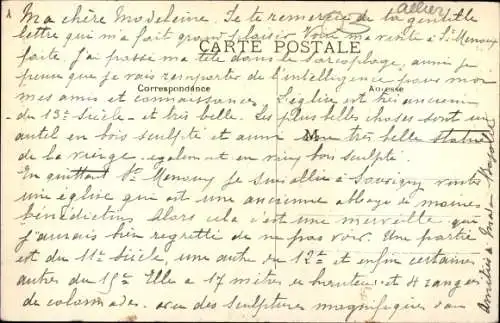 Allier
Ma chère Madeleine. Je te remercie de ta gentille
lettre qui m'a fait grand plaisir. Voici ma visite à St Menoux
CARTE POSTALE
faite. J'ai passé ma tête dans le sarcophage, aussi je
pense que je vais remporter de l'intelligence pour mon
Correspondance
Adresse
mes amis et connaissances. L'église est très ancienne
- du 12e siècle - et très belle. Les plus belles choses sont un
autel en bois sculpté et aussi une très belle statue
M
de la vierge, également en vieux bois sculpté.
En quittant St Menoux je suis allée à Souvigny visiter
une église qui est une ancienne abbaye de moines
bénédictins. Alors cela c'est une merveille que
j'aurais bien regretté de ne pas voir. Une partie
est du 11e siècle, une autre du 12e et enfin certaines
autres du 15e. Elle a 17 mètres en hauteur et 4 rangées
de colonnades. avec des sculptures magnifiques dans
Amitiés à